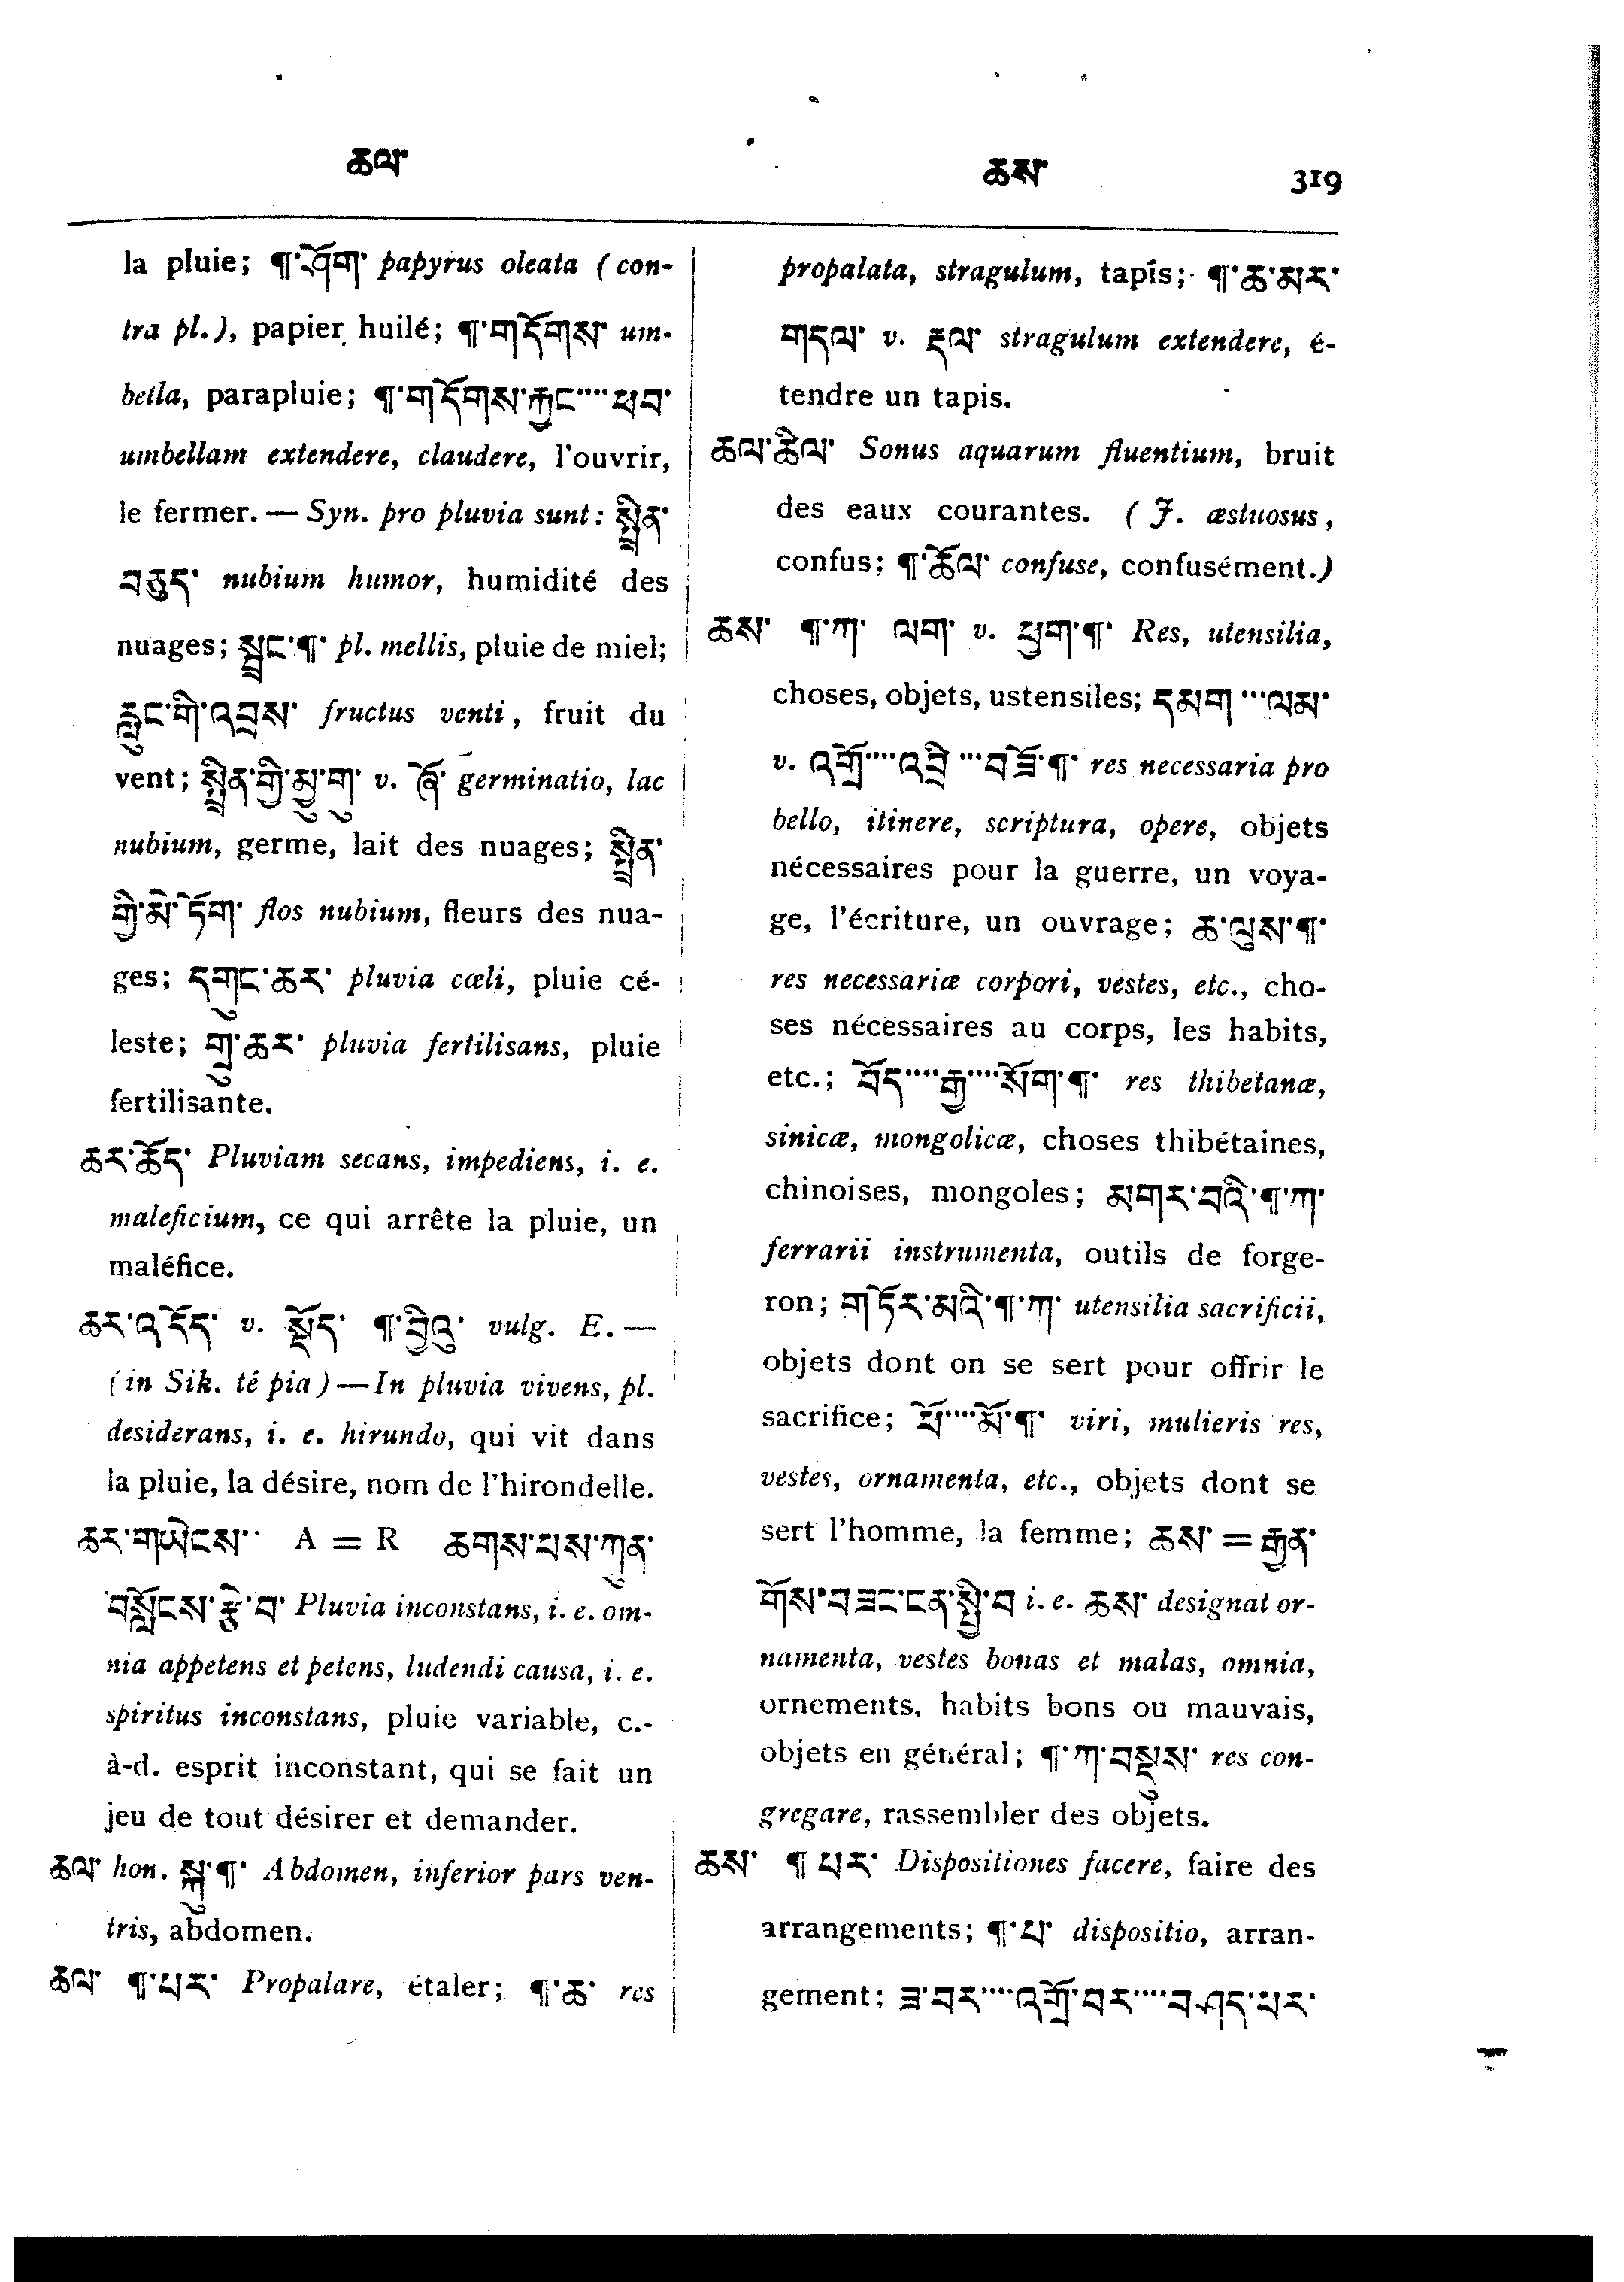 ཆལ་
ཆས་ 319
la pluie; ¶་ཤོག་ papyrus oleata (con-
tra pl.), papier huilé; ¶་གདོགས་ um-
bella, parapluie; ¶་གདོགས་རྐྱང་····ཕབ་
umbellam extendere, claudere, l'ouvrir,
le fermer. — Syn. pro pluvia sunt: སྤྲིན་
བཅུད་ nubium humor, humidité des
nuages; སྦྲང་¶་ pl. mellis, pluie de miel;
རླུང་གི་འབྲས་ fructus venti, fruit du
vent; སྤྲིན་གྱི་མྱུ་གུ་ v. ཞོ་ germinatio, lac
nubium, germe, lait des nuages; སྤྲིན་
གྱི་མེ་ཏོག་ flos nubium, fleurs des nua-
ges; དགུང་ཆར་ pluvia cœli, pluie cé-
leste; གྲུ་ཆར་ pluvia fertilisans, pluie
fertilisante.
ཆར་ཆོད་ Pluviam secans, impediens, i. e.
maleficium, ce qui arrête la pluie, un
maléfice.
ཆར་འདོད་ v. སྡོད་ ¶་བྱིའུ་ vulg. E. —
(in Sik. té pia) — In pluvia vivens, pl.
desiderans, i. e. hirundo, qui vit dans
la pluie, la désire, nom de l'hirondelle.
ཆར་གཡེངས་ A = R ཆགས་པས་ཀུན་
བསློངས་རྩེ་བ་ Pluvia inconstans, i. e. om-
nia appetens et petens, ludendi causa, i. e.
spiritus inconstans, pluie variable, c.-
à-d. esprit inconstant, qui se fait un
jeu de tout désirer et demander.
ཆལ་ hon. སྐུ་¶་ Abdomen, inferior pars ven-
tris, abdomen.
ཆལ་ ¶་པར་ Propalare, étaler; ¶་ཆ་ res
propalata, stragulum, tapis; ¶་ཆ་མར་
གདལ་ v. རྡལ་ stragulum extendere, é-
tendre un tapis.
ཆལ་ཆིལ་ Sonus aquarum fluentium, bruit
des eaux courantes. (J. æstuosus,
confus; ¶་ཆོལ་ confuse, confusément.)
ཆས་ ¶་ཀ་ ལག་ v. ཕྱག་¶་ Res, utensilia,
choses, objets, ustensiles; དམག···ལམ་
v. འགྲོ····འབྲི···བཟོ་¶་ res necessaria pro
bello, itinere, scriptura, opere, objets
nécessaires pour la guerre, un voya-
ge, l'écriture, un ouvrage; ཆ་ལུས་¶་
res necessariæ corpori, vestes, etc., cho-
ses nécessaires au corps, les habits,
etc.; བོད····རྒྱ····སོག་¶་ res thibetanæ,
sinicæ, mongolicæ, choses thibétaines,
chinoises, mongoles; མགར་བའི་¶་ཀ་
ferrarii instrumenta, outils de forge-
ron; གཏོར་མའི་¶་ཀ་ utensilia sacrificii,
objets dont on se sert pour offrir le
sacrifice; ཕོ····མོ་¶་ viri, mulieris res,
vestes, ornamenta, etc., objets dont se
sert l'homme, la femme; ཆས་ = རྒྱན་
གོས་བཟང་ངན་སྤྱི་བ i. e. ཆས་ designat or-
namenta, vestes bonas et malas, omnia,
ornements, habits bons ou mauvais,
objets en général; ¶་ཀ་བསྡུས་ res con-
gregare, rassembler des objets.
ཆས་ ¶ པར་ Dispositiones facere, faire des
arrangements; ¶་པ་ dispositio, arran-
gement; ཟ་བར····འགྲོ་བར····བཤད་པར་